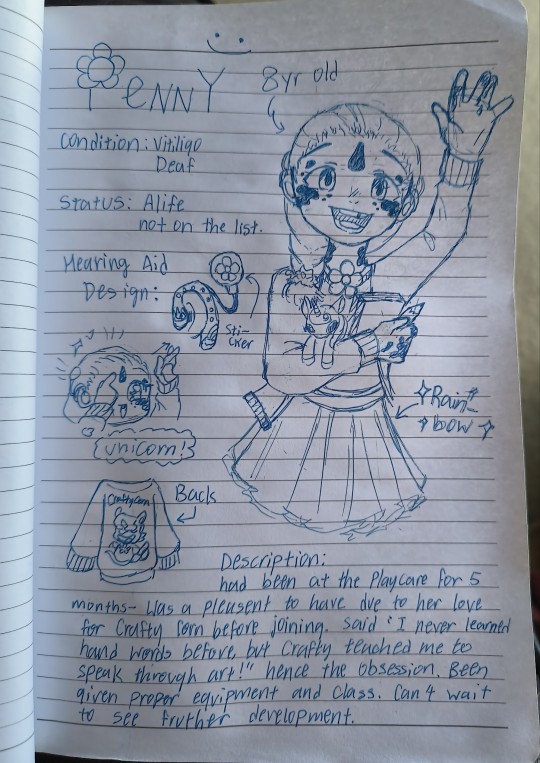 PENNY
8yr old
Condition: Vitiligo
Deaf
Status: Alife
not on the list.
Hearing Aid
Design:
Sti-
cker
Rain-
bow
unicorn!
CraftyCorn
Back
Description:
had been at the Playcare for 5
months- Was a pleusent to have due to her love
for Crafty Corn before joining. Said "I never learned
hand words before but Crafty teached me to
speak through art!" hence the obsession. Been
given proper equipment and class. Can't wait
to see fruther development.